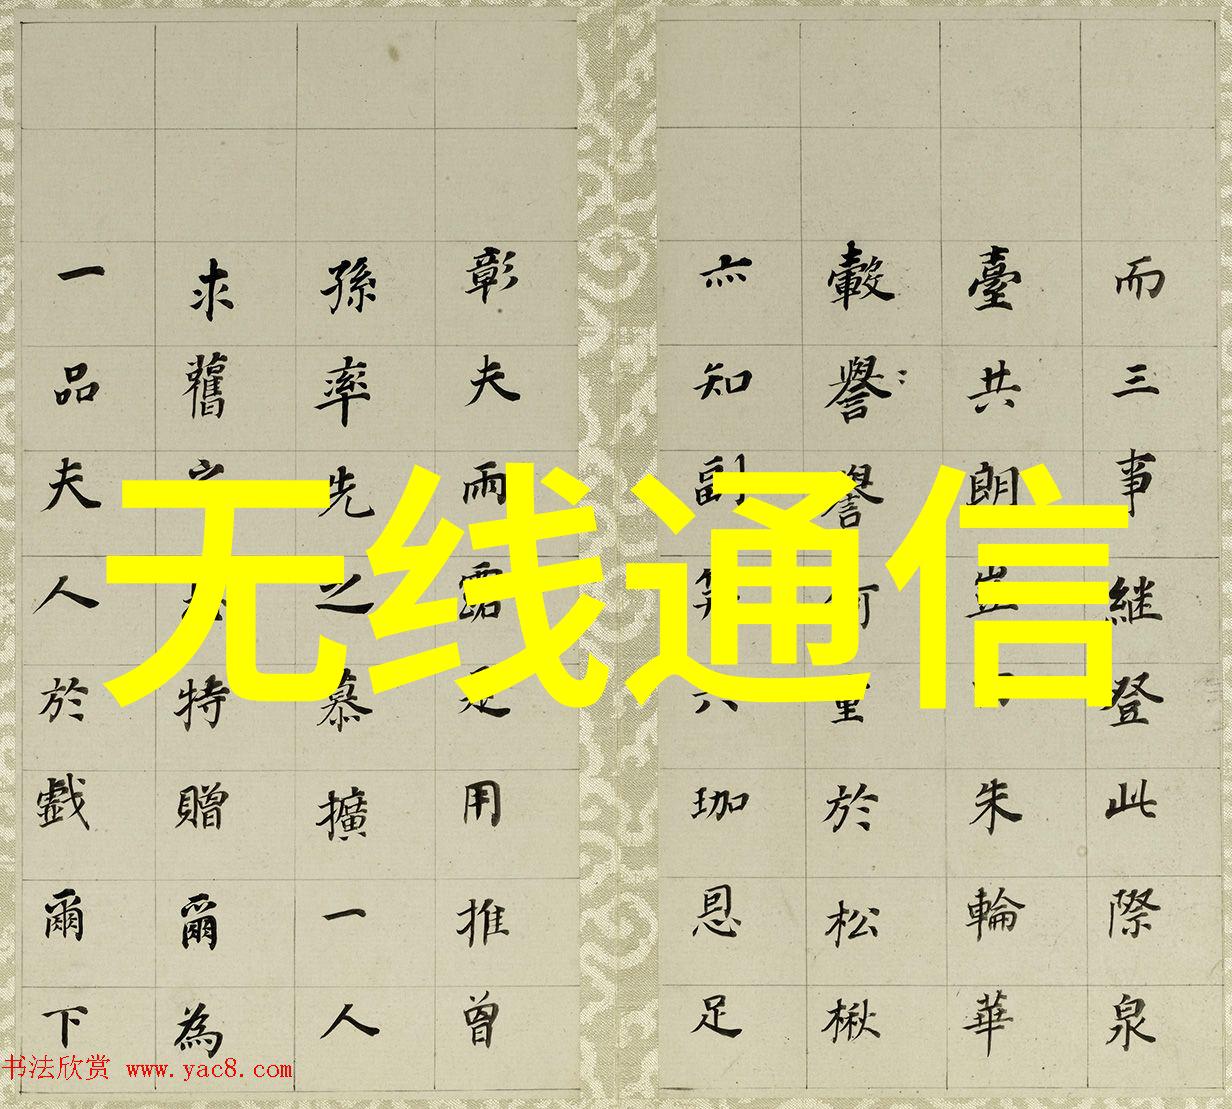 无线通信
而三事继登此際泉
臺共朗豈朱輪華
轂譽譽何重於松楸
亦知副笄六珈恩足
彰夫雨露是用推曾
孫率先之慕擴一人
求舊特贈爾為
一品夫人於戲爾下
书法欣赏 www.yac8.com